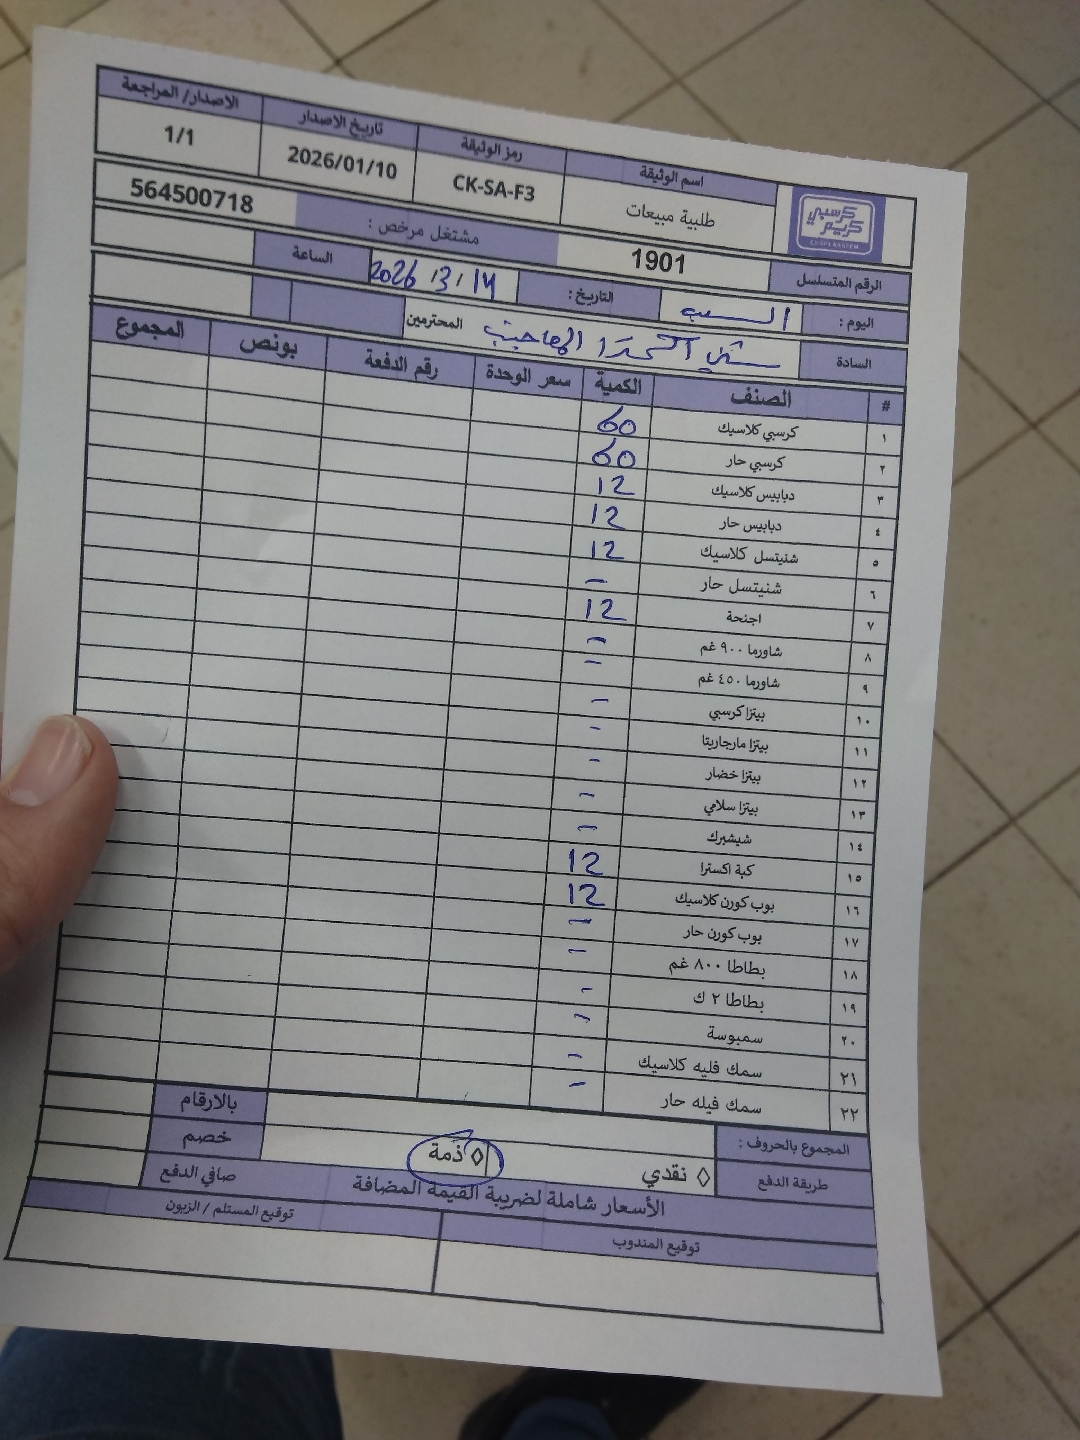 كرسبي كريم
CRISPY KAREEM
اسم الوثيقة رمز الوثيقة تاريخ الاصدار الاصدار/ المراجعة
طلبية مبيعات CK-SA-F3 2026/01/10 1/1
الرقم المتسلسل 1901 مشتغل مرخص : 564500718
اليوم : السبت التاريخ : 2026/3/14 الساعة
السادة المحترمين
# الصنف الكمية سعر الوحدة رقم الدفعة بونص المجموع
١ كرسبي كلاسيك 60
٢ كرسبي حار 60
٣ دبابيس كلاسيك 12
٤ دبابيس حار 12
٥ شنيتسل كلاسيك 12
٦ شنيتسل حار -
٧ اجنحة 12
٨ شاورما ٩٠٠ غم -
٩ شاورما ٤٥٠ غم -
١٠ بيتزا كرسبي -
١١ بيتزا مارجاريتا -
١٢ بيتزا خضار -
١٣ بيتزا سلامي -
١٤ شيشبرك -
١٥ كبة اكسترا 12
١٦ بوب كورن كلاسيك 12
١٧ بوب كورن حار -
١٨ بطاطا ٨٠٠ غم -
١٩ بطاطا ٢ ك -
٢٠ سمبوسة -
٢١ سمك فليه كلاسيك -
٢٢ سمك فيله حار -
المجموع بالحروف : بالارقام
طريقة الدفع ◊ نقدي ◊ ذمة خصم
الأسعار شاملة لضريبة القيمة المضافة صافي الدفع
توقيع المندوب توقيع المستلم / الزبون